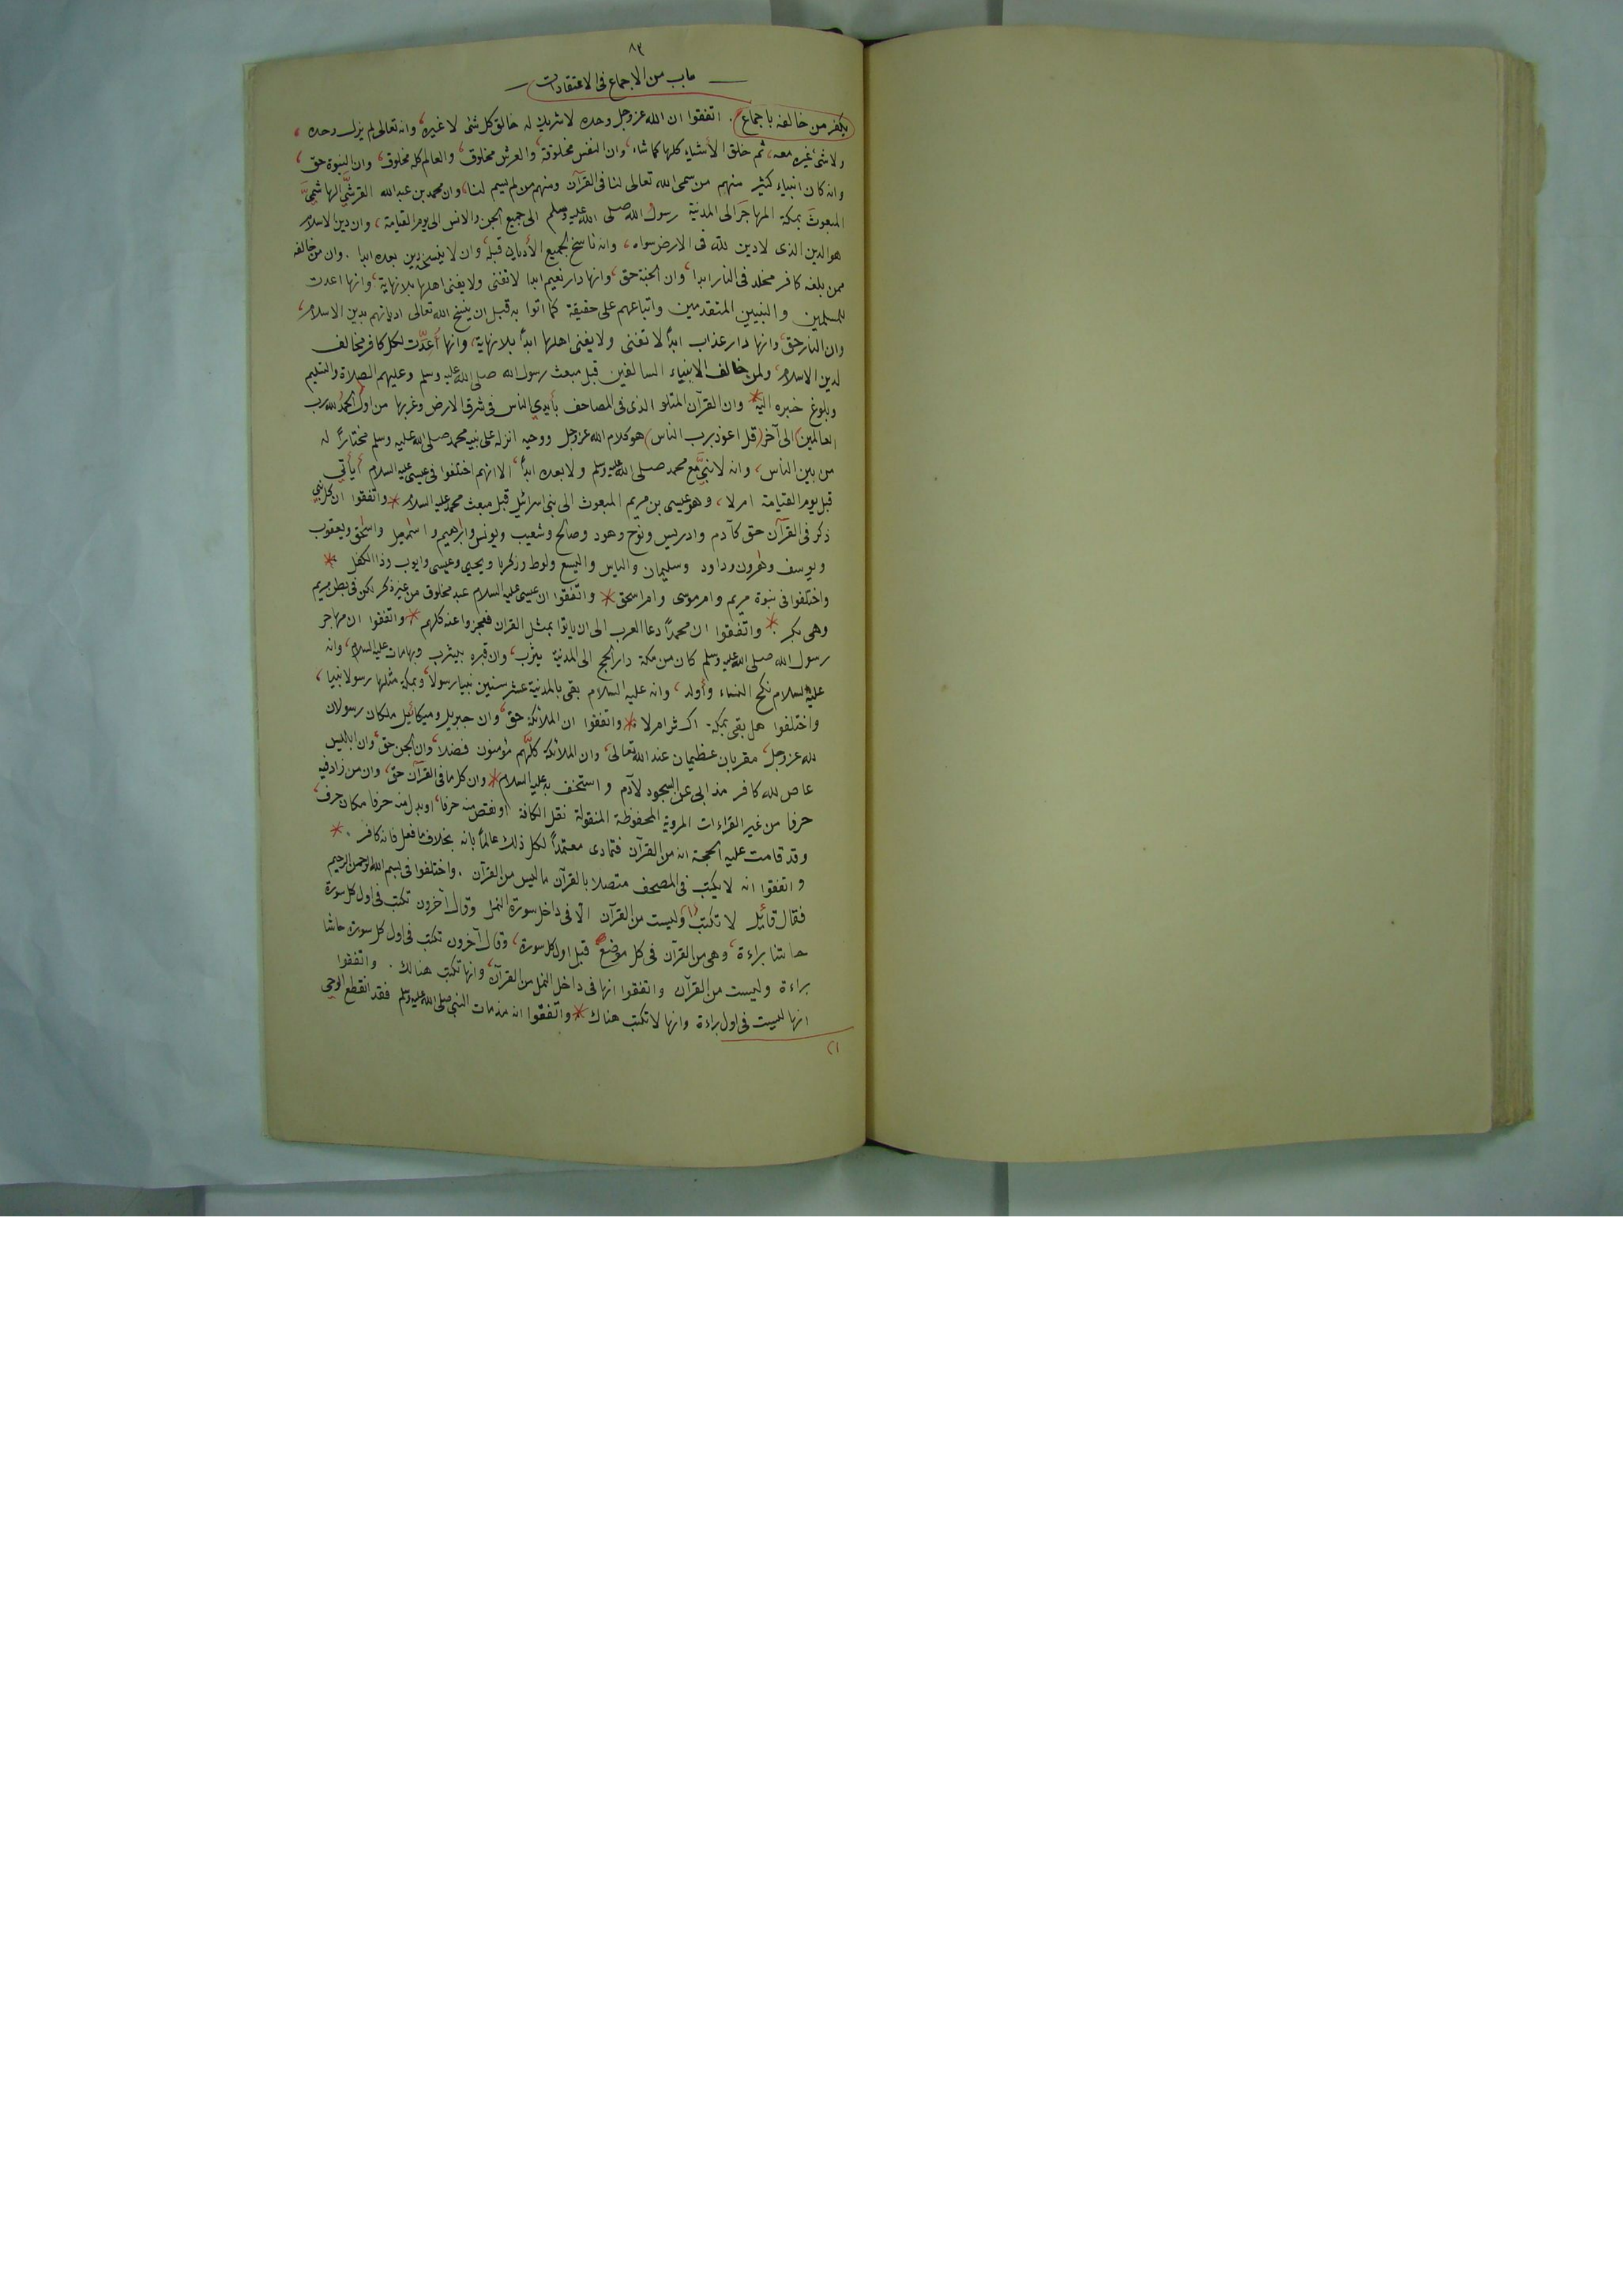 ٨٣
باب من الاجماع فى الاعتقادات
يكفر من خالفه باجماع . اتفقوا ان الله عز وجل وحده لا شريك له خالق كل شئ لا غيره، وانه تعالى لم يزل وحده،
ولا شئ غيره معه، ثم خلق الأشياء كلها كما شاء، وان النفس مخلوقة، والعرش مخلوق، والعالم كله مخلوق، وان النبوة حق،
وانه كان انبياء كثير منهم من سمى الله تعالى لنا فى القرآن ومنهم من لم يسم لنا، وان محمد بن عبد الله القرشيَّ الهاشميَّ
المبعوث بمكة المهاجرَ الى المدينة رسول الله صلى الله عليه وسلم الى جميع الجن والانس الى يوم القيامة، وان دين الاسلام
هو الدين الذى لا دين لله فى الارض سواه، وانه ناسخ لجميع الأديان قبله، وان لا ينسخه دين بعده ابدا . وان من خالفه
ممن بلغه كافر مخلد فى النار ابدا، وان الجنة حق، وانها دار نعيم ابدا لا تفنى ولا يفنى اهلها بلا نهاية، وانها اعدت
للمسلمين والنبيين المتقدمين واتباعهم على حقيقة كما اتوا به قبل ان ينسخ الله تعالى اديانهم بدين الاسلام،
وان النار حق، وانها دار عذاب ابدًا لا تفنى ولا يفنى اهلها ابدًا بلا نهاية، وانها أُعدّت لكل كافر مخالف
لدين الاسلام، ولمن خالف الانبياء السالفين قبل مبعث رسول الله صلى الله عليه وسلم وعليهم الصلاة والتسليم
وبلوغ خبره اليه * وان القرآن المتلو الذى فى المصاحف بأيدي الناس فى شرق الارض وغربها من اول (الحمدُ لله رب
العالمين) الى آخر (قل اعوذ برب الناس) هو كلام الله عز وجل ووحيه انزله على نبيه محمد صلى الله عليه وسلم مختارًا له
من بين الناس، وانه لا نبيَّ مع محمد صلى الله عليه وسلم ولا بعده ابدًا، الا انهم اختلفوا فى عيسى عليه السلام أيأتي
قبل يوم القيامة ام لا، وهو عيسى بن مريم المبعوث الى بنى اسرائيل قبل مبعث محمد عليه السلام * واتفقوا ان كل نبي
ذكر فى القرآن حق كآدم وادريس ونوح وهود وصالح وشعيب ويونس وابرهيم واسمعيل واسحق ويعقوب
ويوسف وهرون وداود وسليمان والياس واليسع ولوط وزكريا ويحيى وعيسى وايوب وذا الكفل . *
واختلفوا فى نبوة مريم وام موسى وام اسحق * واتفقوا ان عيسى عليه السلام عبد مخلوق من غير ذكر لكن فى بطن مريم
وهى بكر . * واتفقوا ان محمدًا دعا العرب الى ان ياتوا بمثل القران فعجزوا عنه كلهم * واتفقوا ان مهاجر
رسول الله صلى الله عليه وسلم كان من مكة دار الحج الى المدينة يثرب، وان قبره بيثرب وبها مات عليه السلام، وانه
عليه السلام نكح النساء وأولد، وانه عليه السلام بقى بالمدينة عشر سنين نبيا رسولا، وبمكة مثلها رسولا نبيا،
واختلفوا هل بقى بمكة اكثر ام لا . * واتفقوا ان الملائكة حق، وان جبريل وميكائيل ملكان رسولان
لله عز وجل، مقربان عظيمان عند الله تعالى، وان الملائكة كلَّهم مؤمنون فضلا، وان الجن حق، وان ابليس
عاص لله كافر مذ ابى عن السجود لآدم واستخف به عليه السلام * وان كل ما فى القرآن حق، وان من زاد فيه
حرفا من غير القراءات المروية المحفوظة المنقولة نقل الكافة، او نقص منه حرفا، او بدل منه حرفا مكان حرف،
وقد قامت عليه الحجة انه من القرآن فتمادى معتمدًا لكل ذلك عالمًا بانه بخلاف ما فعل فانه كافر . *
واتفقوا انه لا يكتب فى المصحف متصلا بالقرآن ما ليس من القرآن . واختلفوا فى بسم الله الرحمن الرحيم
فقال قائل لا تكتب (١) وليست من القرآن الا فى داخل سورة النمل وقال آخرون تكتب فى اول كل سورة
حاشا براءة، وهى من القرآن فى كل موضع قبل اول كل سورة، وقال آخرون تكتب فى اول كل سورة حاشا
براءة وليست من القرآن واتفقوا انها فى داخل النمل من القرآن، وانها تكتب هنالك . واتفقوا
انها ليست فى اول براءة وانها لا تكتب هناك * واتفقوا انه مذ مات النبي صلى الله عليه وسلم فقد انقطع الوحي
(١